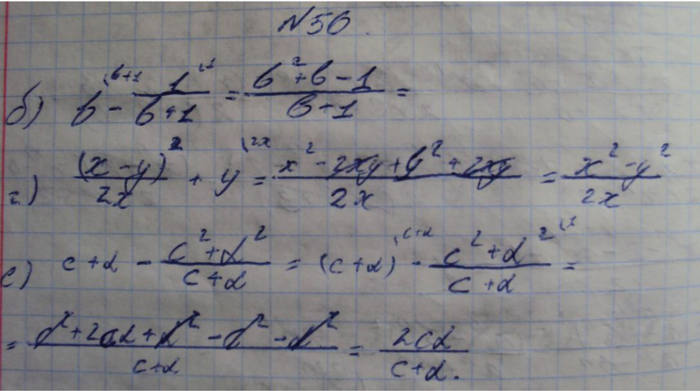 №56.
б) b^{\b+1} - 1^{\1}/(b+1) = (b²+b-1)/(b-1) =
г) (x-y)²/2x + y^{\2x} = (x²-2xy+y²+2xy)/2x = (x²-y²)/2x
е) c+d - (c²+d²)/(c+d) = (c+d)^{\c+d} - (c²+d²)^{\1}/(c+d) =
= (c²+2cd+d²-c²-d²)/(c+d) = 2cd/(c+d).